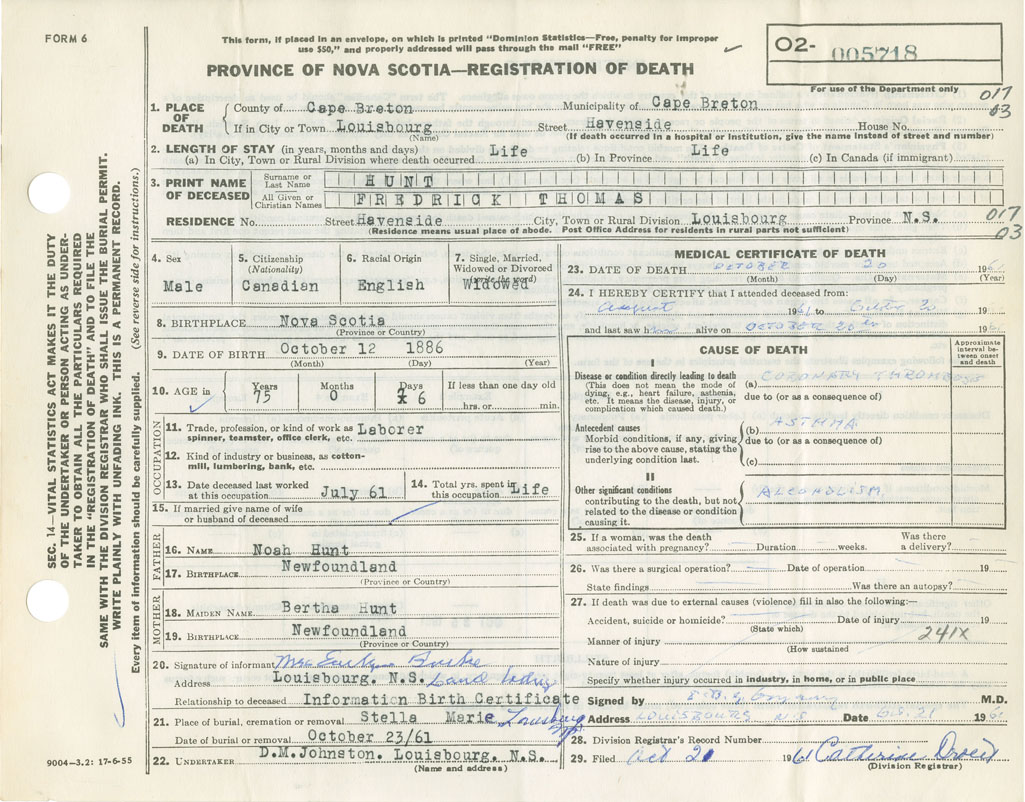 FORM 6
This form, if placed in an envelope, on which is printed "Dominion Statistics—Free, penalty for improper
use $50," and properly addressed will pass through the mail "FREE"
PROVINCE OF NOVA SCOTIA—REGISTRATION OF DEATH
O2- 005718
For use of the Department only
017
03
SEC. 14—VITAL STATISTICS ACT MAKES IT THE DUTY
OF THE UNDERTAKER OR PERSON ACTING AS UNDER-
TAKER TO OBTAIN ALL THE PARTICULARS REQUIRED
IN THE "REGISTRATION OF DEATH" AND TO FILE THE
SAME WITH THE DIVISION REGISTRAR WHO SHALL ISSUE THE BURIAL PERMIT.
WRITE PLAINLY WITH UNFADING INK. THIS IS A PERMANENT RECORD.
Every item of information should be carefully supplied. (See reverse side for instructions.)
1. PLACE OF DEATH
County of Cape Breton Municipality of Cape Breton
If in City or Town Louisbourg Street Havenside House No.
(Name) (If death occurred in a hospital or institution, give the name instead of street and number)
2. LENGTH OF STAY (in years, months and days)
(a) In City, Town or Rural Division where death occurred Life (b) In Province Life (c) In Canada (if immigrant)
3. PRINT NAME OF DECEASED
Surname or Last Name HUNT
All Given or Christian Names FREDRICK THOMAS
RESIDENCE No. Street Havenside City, Town or Rural Division Louisbourg Province N.S.
(Residence means usual place of abode. Post Office Address for residents in rural parts not sufficient)
017
03
4. Sex
Male
5. Citizenship (Nationality)
Canadian
6. Racial Origin
English
7. Single, Married, Widowed or Divorced (write the word)
Widowed
8. BIRTHPLACE Nova Scotia
(Province or Country)
9. DATE OF BIRTH October 12 1886
(Month) (Day) (Year)
10. AGE in
Years 75
Months 0
Days 6
If less than one day old
hrs. or min.
OCCUPATION
11. Trade, profession, or kind of work as Laborer
spinner, teamster, office clerk, etc.
12. Kind of industry or business, as cotton-
mill, lumbering, bank, etc.
13. Date deceased last worked at this occupation July 61
14. Total yrs. spent in this occupation Life
15. If married give name of wife
or husband of deceased
FATHER
16. NAME Noah Hunt
17. BIRTHPLACE Newfoundland
(Province or Country)
MOTHER
18. MAIDEN NAME Bertha Hunt
19. BIRTHPLACE Newfoundland
(Province or Country)
20. Signature of informant Mrs
Address Louisbourg. N.S.
Relationship to deceased Information Birth Certificate
21. Place of burial, cremation or removal Stella Marie Louisburg
Date of burial or removal October 23/61
22. UNDERTAKER D.M.Johnston. Louisbourg. N.S.
(Name and address)
9004—3.2: 17-6-55
MEDICAL CERTIFICATE OF DEATH
23. DATE OF DEATH OCTOBER 20 196
(Month) (Day) (Year)
24. I HEREBY CERTIFY that I attended deceased from:
August 1961 to 19
and last saw h alive on OCTOBER 20th 196
CAUSE OF DEATH
Approximate interval between onset and death
I
Disease or condition directly leading to death
(This does not mean the mode of
dying, e.g., heart failure, asthenia,
etc. It means the disease, injury, or
complication which caused death.)
(a) CORONARY THROMBOSIS
due to (or as a consequence of)
Antecedent causes
Morbid conditions, if any, giving
rise to the above cause, stating the
underlying condition last.
(b) ASTHMA
due to (or as a consequence of)
(c)
II
Other significant conditions
contributing to the death, but not
related to the disease or condition
causing it.
ALCOHOLISM
25. If a woman, was the death
associated with pregnancy? Duration weeks. Was there a delivery?
26. Was there a surgical operation? Date of operation 19
State findings Was there an autopsy?
27. If death was due to external causes (violence) fill in also the following:—
Accident, suicide or homicide? Date of injury 19
(State which)
241X
Manner of injury
(How sustained
Nature of injury
Specify whether injury occurred in industry, in home, or in public place
Signed by M.D.
Address LOUISBOURG N.S. Date 196
28. Division Registrar's Record Number
29. Filed Oct 21 1961 Catherine
(Division Registrar)